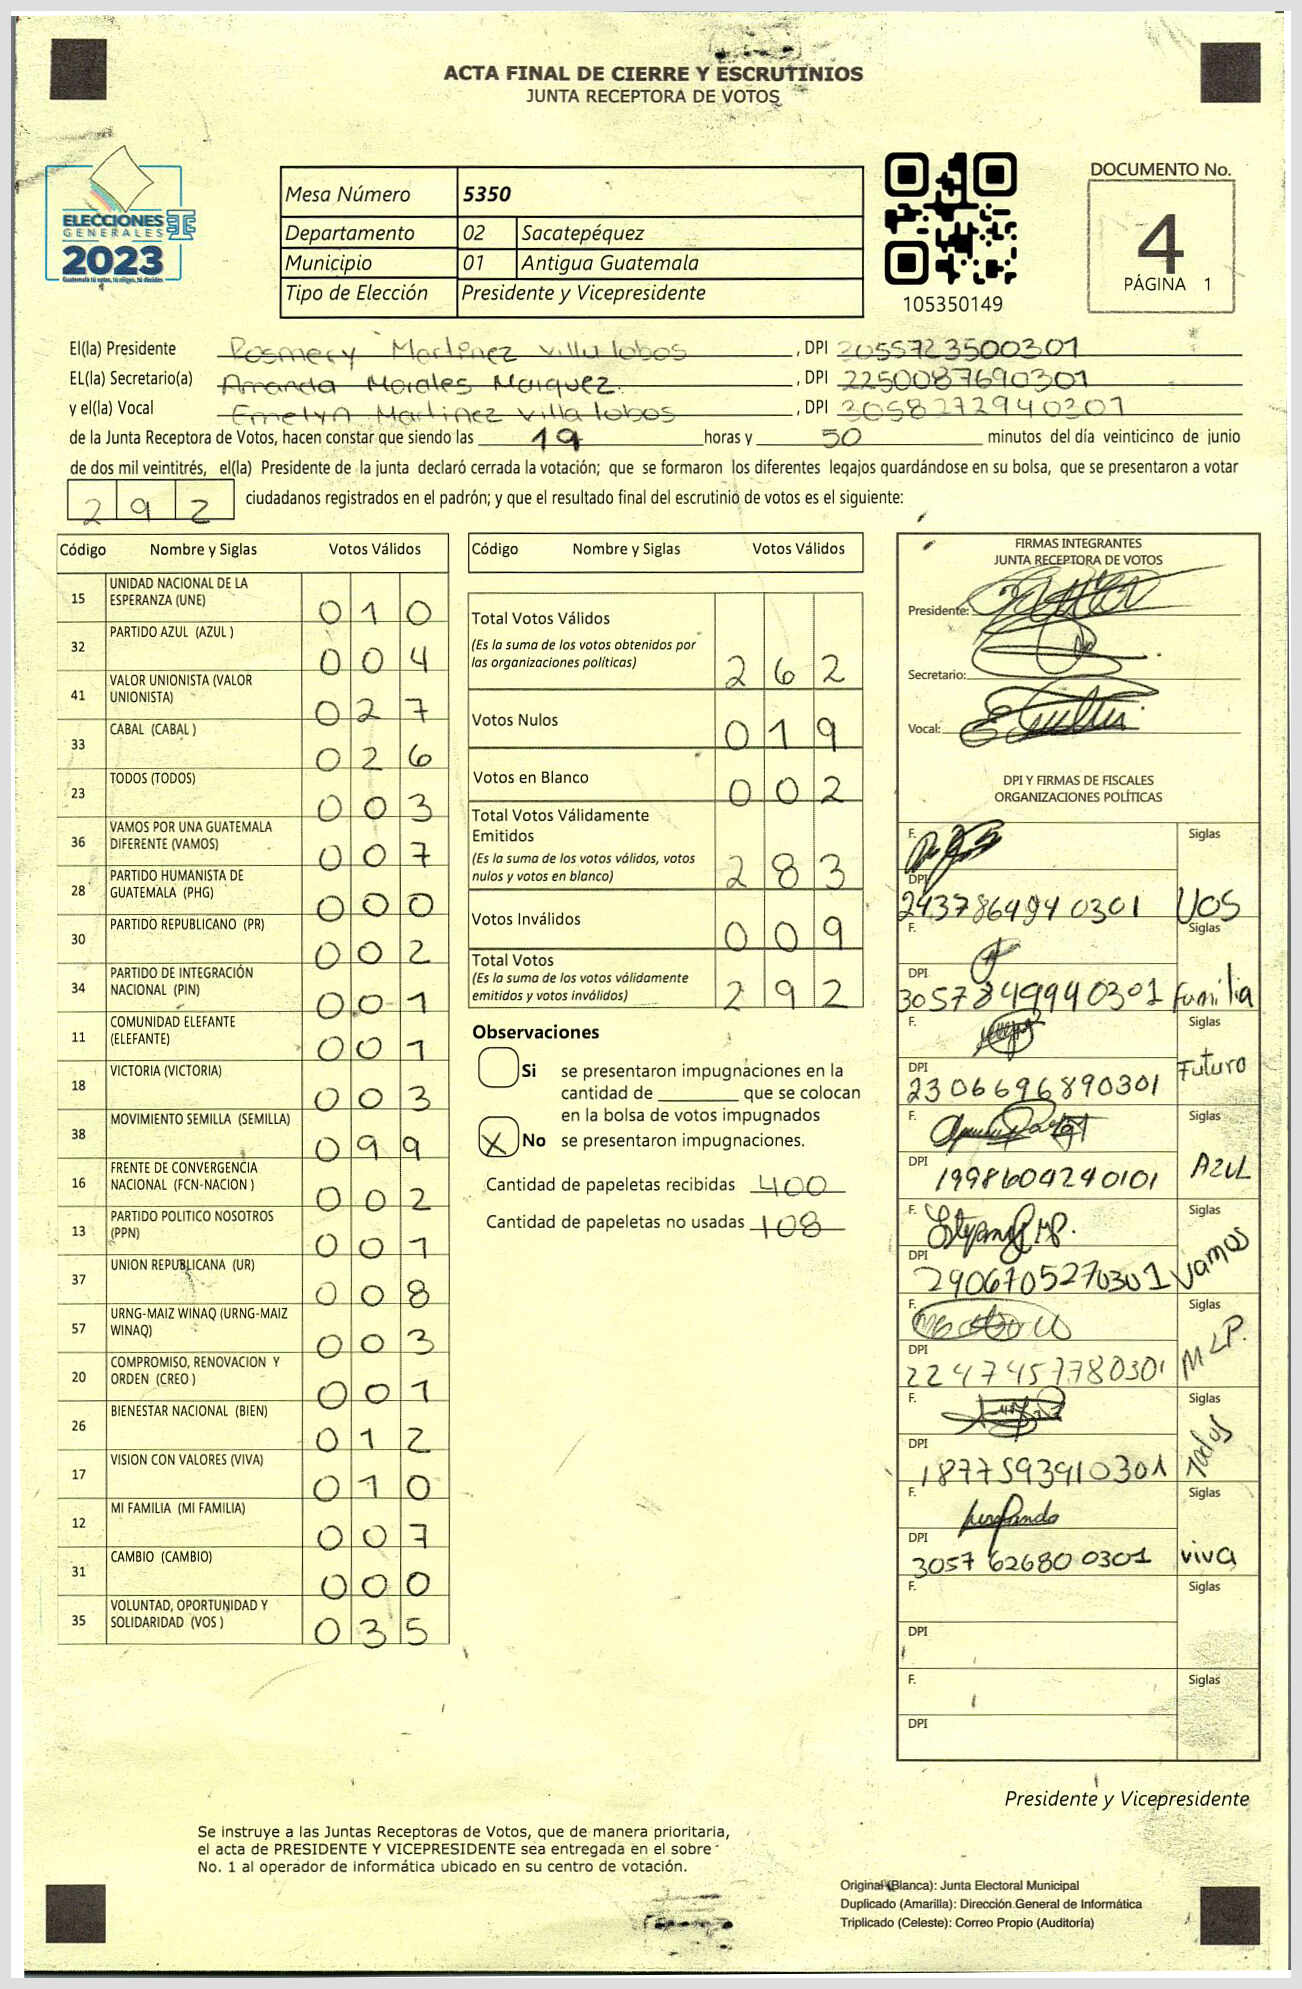 ACTA FINAL DE CIERRE Y ESCRUTINIOS
JUNTA RECEPTORA DE VOTOS
ELECCIONES
GENERALES
2023
Guatemala tú votas, tú eliges, tú decides
Mesa Número 5350
Departamento 02 Sacatepéquez
Municipio 01 Antigua Guatemala
Tipo de Elección Presidente y Vicepresidente
105350149
DOCUMENTO No.
4
PÁGINA 1
El(la) Presidente Rosmery Martinez Villalobos, DPI 2055723500301
EL(la) Secretario(a) Amanda Morales Marquez., DPI 2250087690301
y el(la) Vocal Emelyn Martinez Villa lobos, DPI 3058272940301
de la Junta Receptora de Votos, hacen constar que siendo las 19 horas y 50 minutos del día veinticinco de junio
de dos mil veintitrés, el(la) Presidente de la junta declaró cerrada la votación; que se formaron los diferentes legajos guardándose en su bolsa, que se presentaron a votar
292 ciudadanos registrados en el padrón; y que el resultado final del escrutinio de votos es el siguiente:
Código Nombre y Siglas Votos Válidos
15 UNIDAD NACIONAL DE LA ESPERANZA (UNE) 010
32 PARTIDO AZUL (AZUL ) 004
41 VALOR UNIONISTA (VALOR UNIONISTA) 027
33 CABAL (CABAL ) 026
23 TODOS (TODOS) 003
36 VAMOS POR UNA GUATEMALA DIFERENTE (VAMOS) 007
28 PARTIDO HUMANISTA DE GUATEMALA (PHG) 000
30 PARTIDO REPUBLICANO (PR) 002
34 PARTIDO DE INTEGRACIÓN NACIONAL (PIN) 001
11 COMUNIDAD ELEFANTE (ELEFANTE) 001
18 VICTORIA (VICTORIA) 003
38 MOVIMIENTO SEMILLA (SEMILLA) 099
16 FRENTE DE CONVERGENCIA NACIONAL (FCN-NACION ) 002
13 PARTIDO POLITICO NOSOTROS (PPN) 001
37 UNION REPUBLICANA (UR) 008
57 URNG-MAIZ WINAQ (URNG-MAIZ WINAQ) 003
20 COMPROMISO, RENOVACION Y ORDEN (CREO ) 001
26 BIENESTAR NACIONAL (BIEN) 012
17 VISION CON VALORES (VIVA) 010
12 MI FAMILIA (MI FAMILIA) 007
31 CAMBIO (CAMBIO) 000
35 VOLUNTAD, OPORTUNIDAD Y SOLIDARIDAD (VOS ) 035
Código Nombre y Siglas Votos Válidos
Total Votos Válidos
(Es la suma de los votos obtenidos por
las organizaciones políticas) 262
Votos Nulos 019
Votos en Blanco 002
Total Votos Válidamente
Emitidos
(Es la suma de los votos válidos, votos
nulos y votos en blanco) 283
Votos Inválidos 009
Total Votos
(Es la suma de los votos válidamente
emitidos y votos inválidos) 292
Observaciones
Si se presentaron impugnaciones en la
cantidad de ________ que se colocan
en la bolsa de votos impugnados
X No se presentaron impugnaciones.
Cantidad de papeletas recibidas 400
Cantidad de papeletas no usadas 108
FIRMAS INTEGRANTES
JUNTA RECEPTORA DE VOTOS
Presidente:
Secretario:
Vocal:
DPI Y FIRMAS DE FISCALES
ORGANIZACIONES POLÍTICAS
F. Siglas
DPI 2437864940301 VOS
F. Siglas
DPI 3057849940301 familia
F. Siglas
DPI 2306696890301 Futuro
F. Siglas
DPI 1998604240101 AZUL
F. Siglas
DPI 2906705270301 Vamos
F. Siglas
DPI 2247457780301 MLP.
F. Siglas
DPI 1877593910301 Todos
F. Siglas
DPI 3057626800301 viva
F. Siglas
DPI
F. Siglas
DPI
Presidente y Vicepresidente
Se instruye a las Juntas Receptoras de Votos, que de manera prioritaria,
el acta de PRESIDENTE Y VICEPRESIDENTE sea entregada en el sobre
No. 1 al operador de informática ubicado en su centro de votación.
Original (Blanca): Junta Electoral Municipal
Duplicado (Amarilla): Dirección General de Informática
Triplicado (Celeste): Correo Propio (Auditoría)